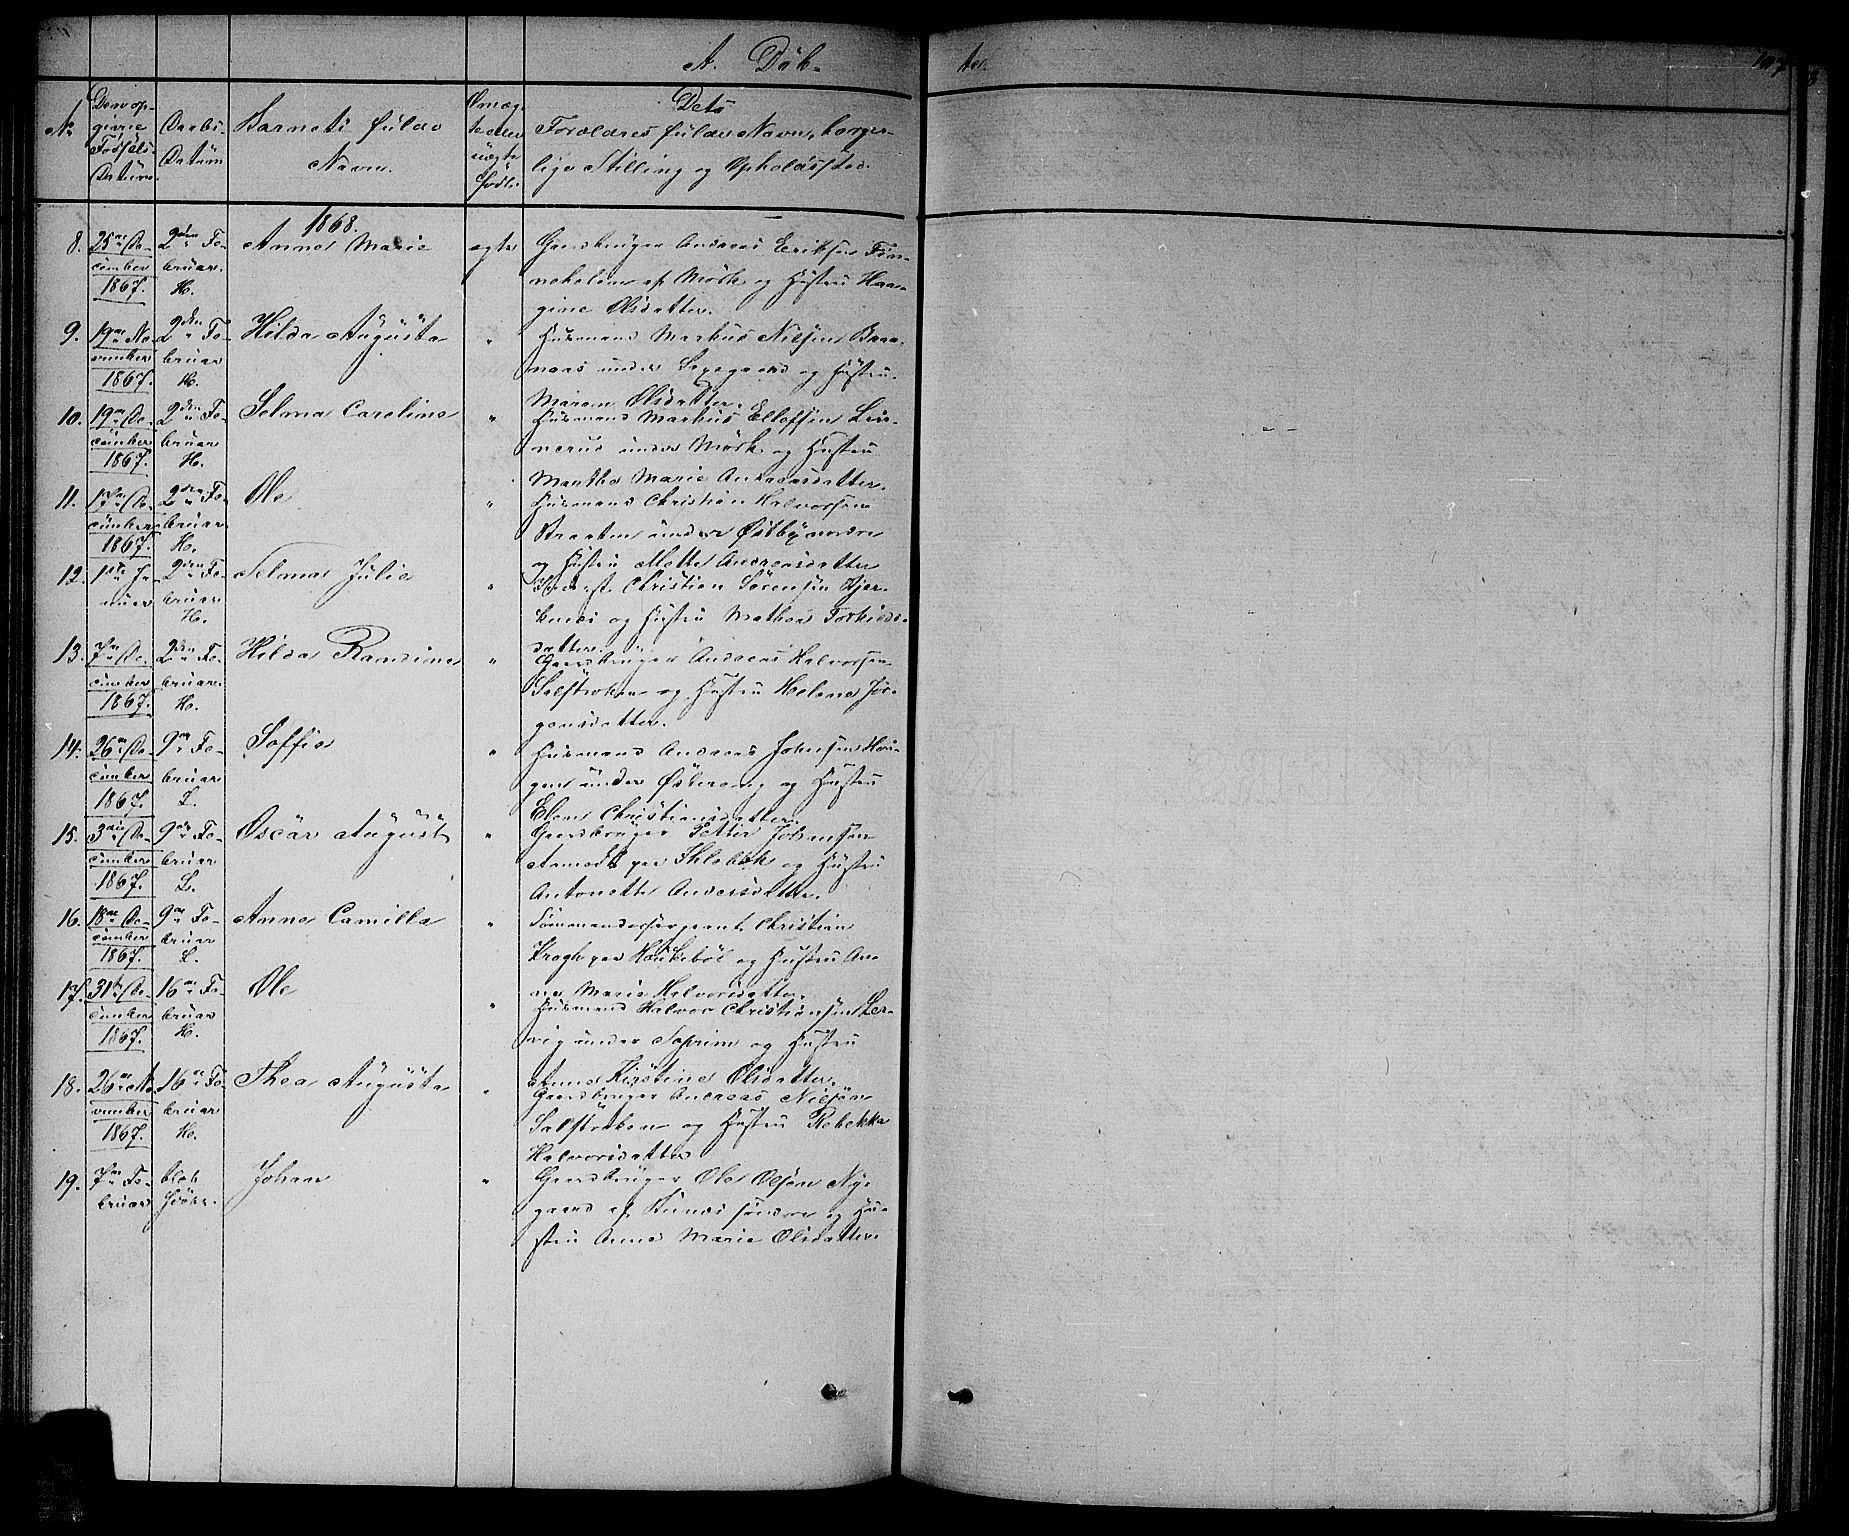 A. Döb-
te.
No
Den op-
givne
Födsels
Datum.
Daabs
Datum
Barnets fulde
Navn.
Om æg-
te eller
uægte
födt.
Dets
Forældres fulde Navn, borger-
lige Stilling og Opholdssted.
1868.
8. 25de De-
cember
1867.
2den Fe-
bruar.
H.
Anne Marie
ægte
Gaardbruger Andreas Eriksen Fin-
neholen af Mörk og Hustru Haa-
gine Olsdatter.
9. 19de No-
vember
1867.
2den Fe-
bruar
H.
Hilda Augusta
"
Husmand Markus Nilsen Braa-
naas under og Hustru
Maren Olsdatter.
10. 19de De-
cember
1867.
2den Fe-
bruar
H.
Selma Caroline
"
Husmand Markus Ellefsen
under Mörk og Hustru
Marthe Marie Andreasdatter.
11. 17de De-
cember
1867.
2den Fe-
bruar
H.
Ole
"
Husmand Christian Halvorsen
Braaten under Østby nordre
og Hustru Mathe Andreasdatter
12. 1ste Ja-
nuar
2den Fe-
bruar
H.
Selma Julie
"
Christian Sörensen Hjer-
og Hustru Mathea Torkilds-
datter.
13. 7de De-
cember
1867.
2den Fe-
bruar.
H.
Hilda Randine
"
Gaardbruger Andreas Halvorsen
Salströken og Hustru Helene Jör-
gensdatter.
14. 26de De-
cember
1867.
9de Fe-
bruar
L.
Soffie
"
Husmand Andreas Johnsen Hau-
gen under Østeraug og Hustru
Elen Christiansdatter.
15. 3die De-
cember
1867.
9de Fe-
bruar
L.
Oscar August
"
Gaardbruger Petter Johansen
paa og Hustru
Antonette Andersdatter.
16. 18de De-
cember
1867.
9de Fe-
bruar
L.
Anna Camilla
"
Commandersergeant Christian
Kragh paa Haukeböl og Hustru An-
ne Marie Halvorsdatter.
17. 31te De-
cember
1867.
16de Fe-
bruar
H.
Ole
"
Husmand Halvor Christiansen Ler-
vig under Soprim og Hustru
Anne Kirstine Olsdatter.
18. 26de No-
vember
1867.
16de Fe-
bruar
H.
Thea Augusta
"
Gaardbruger Andreas Nilsön
Salströken og Hustru Rebekka
Halvorsdatter
19. 7de Fe-
bruar
blot
hjdbt.
Johan
"
Gaardbruger Ole Olsön Ny-
gaard af Runni söndre og Hu-
stru Anne Marie Olsdatter.